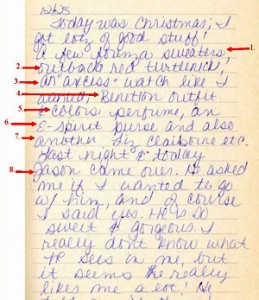 12/25
Today was Christmas; I
got lotz of good stuff!
A few Forma sweaters 1.
2. Outback red turtleneck,
3. an "axcess" watch like I
4. wanted, Benetton outfit
5. & Colors perfume, an
6. e-spirit purse and also
7. another Liz claiborne etc.
Last night & today
8. Jason came over. He asked
me if I wanted to go
w/ him, and of course
I said yes. He is so
sweet & gorgeous. I
really don't know what
He sees in me, but
it seems he really
likes me a lot! He